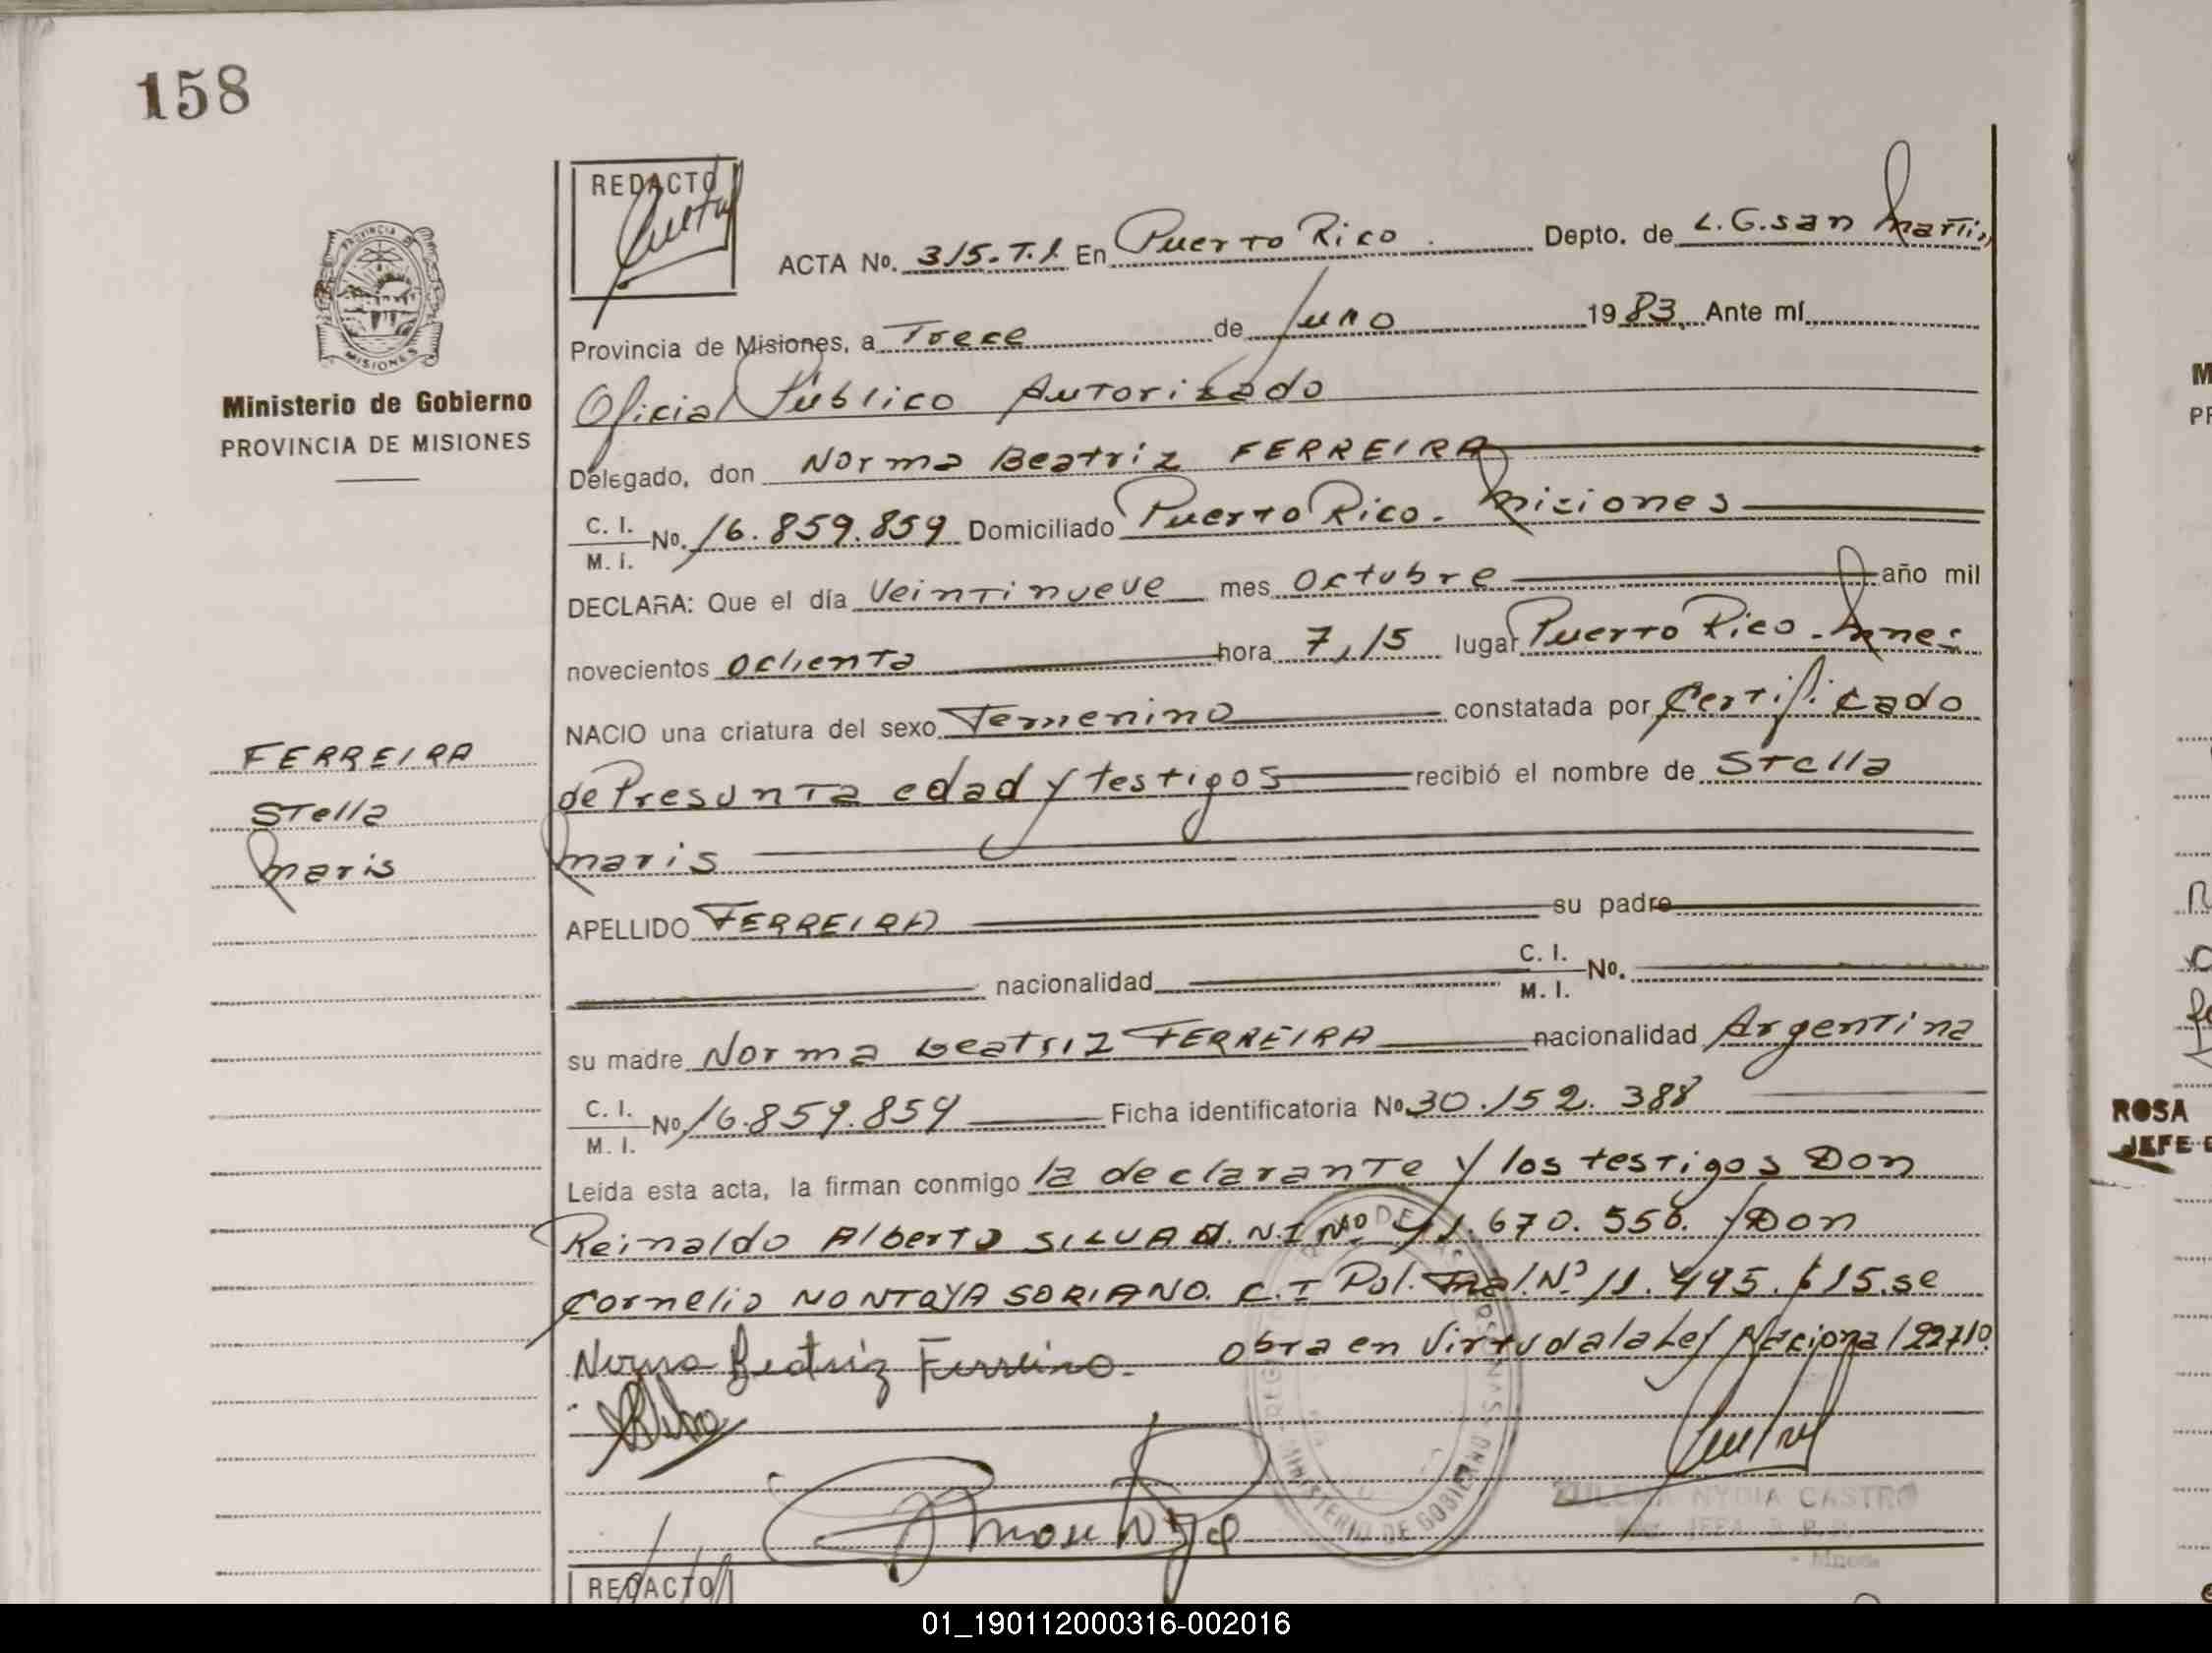 158
REDACTO
ACTA No. 315.T.I. En Puerto Rico. Depto. de L.G.san Martin
PROVINCIA DE
MISIONES
Provincia de Misiones, a Trece de Juno 1983. Ante mí
Ministerio de Gobierno
PROVINCIA DE MISIONES
Oficial Público Autorizado
Delegado, don Norma Beatriz FERREIRA
C. I.
M. I. No. 16.859.859 Domiciliado Puerto Rico. Misiones
DECLARA: Que el día Veintinueve mes Octubre año mil
novecientos ochenta hora 7,15 lugar Puerto Rico. Mnes
NACIO una criatura del sexo Femenino constatada por Certificado
FERREIRA
Stella
Maris
de Presunta edad y testigos recibió el nombre de Stella
Maris
APELLIDO FERREIRA su padre
nacionalidad C. I.
M. I. No.
su madre Norma Beatriz FERREIRA nacionalidad Argentina
C. I.
M. I. No. 16.859.859 Ficha identificatoria No. 30.152.388
Leída esta acta, la firman conmigo la declarante y los testigos Don
Reinaldo Alberto SILVA D.N.I Nº 11.670.556. y Don
Cornelio MONTOYA SORIANO. C.I Pol. Nº 11.495.615.se
Norma Beatriz Ferreira. obra en Virtud a la Ley Nacional 22710.
MINISTERIO DE GOBIERNO
ZULEMA NYDIA CASTRO
JEFA
Mnes.
REDACTO
ROSA
JEFE
01_190112000316-002016